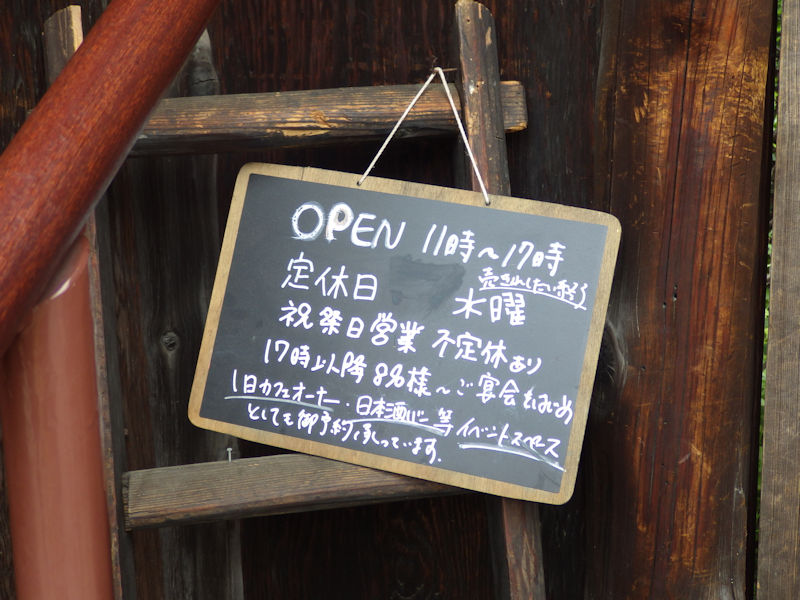 OPEN 11時〜17時
売きれしだい終ろう
定休日 水曜
祝祭日営業 不定休あり
17時以降 8名様〜ご宴会をはじめ
1日カフェオーナー・日本酒バー等 イベントスペース
としても御予約承っています。